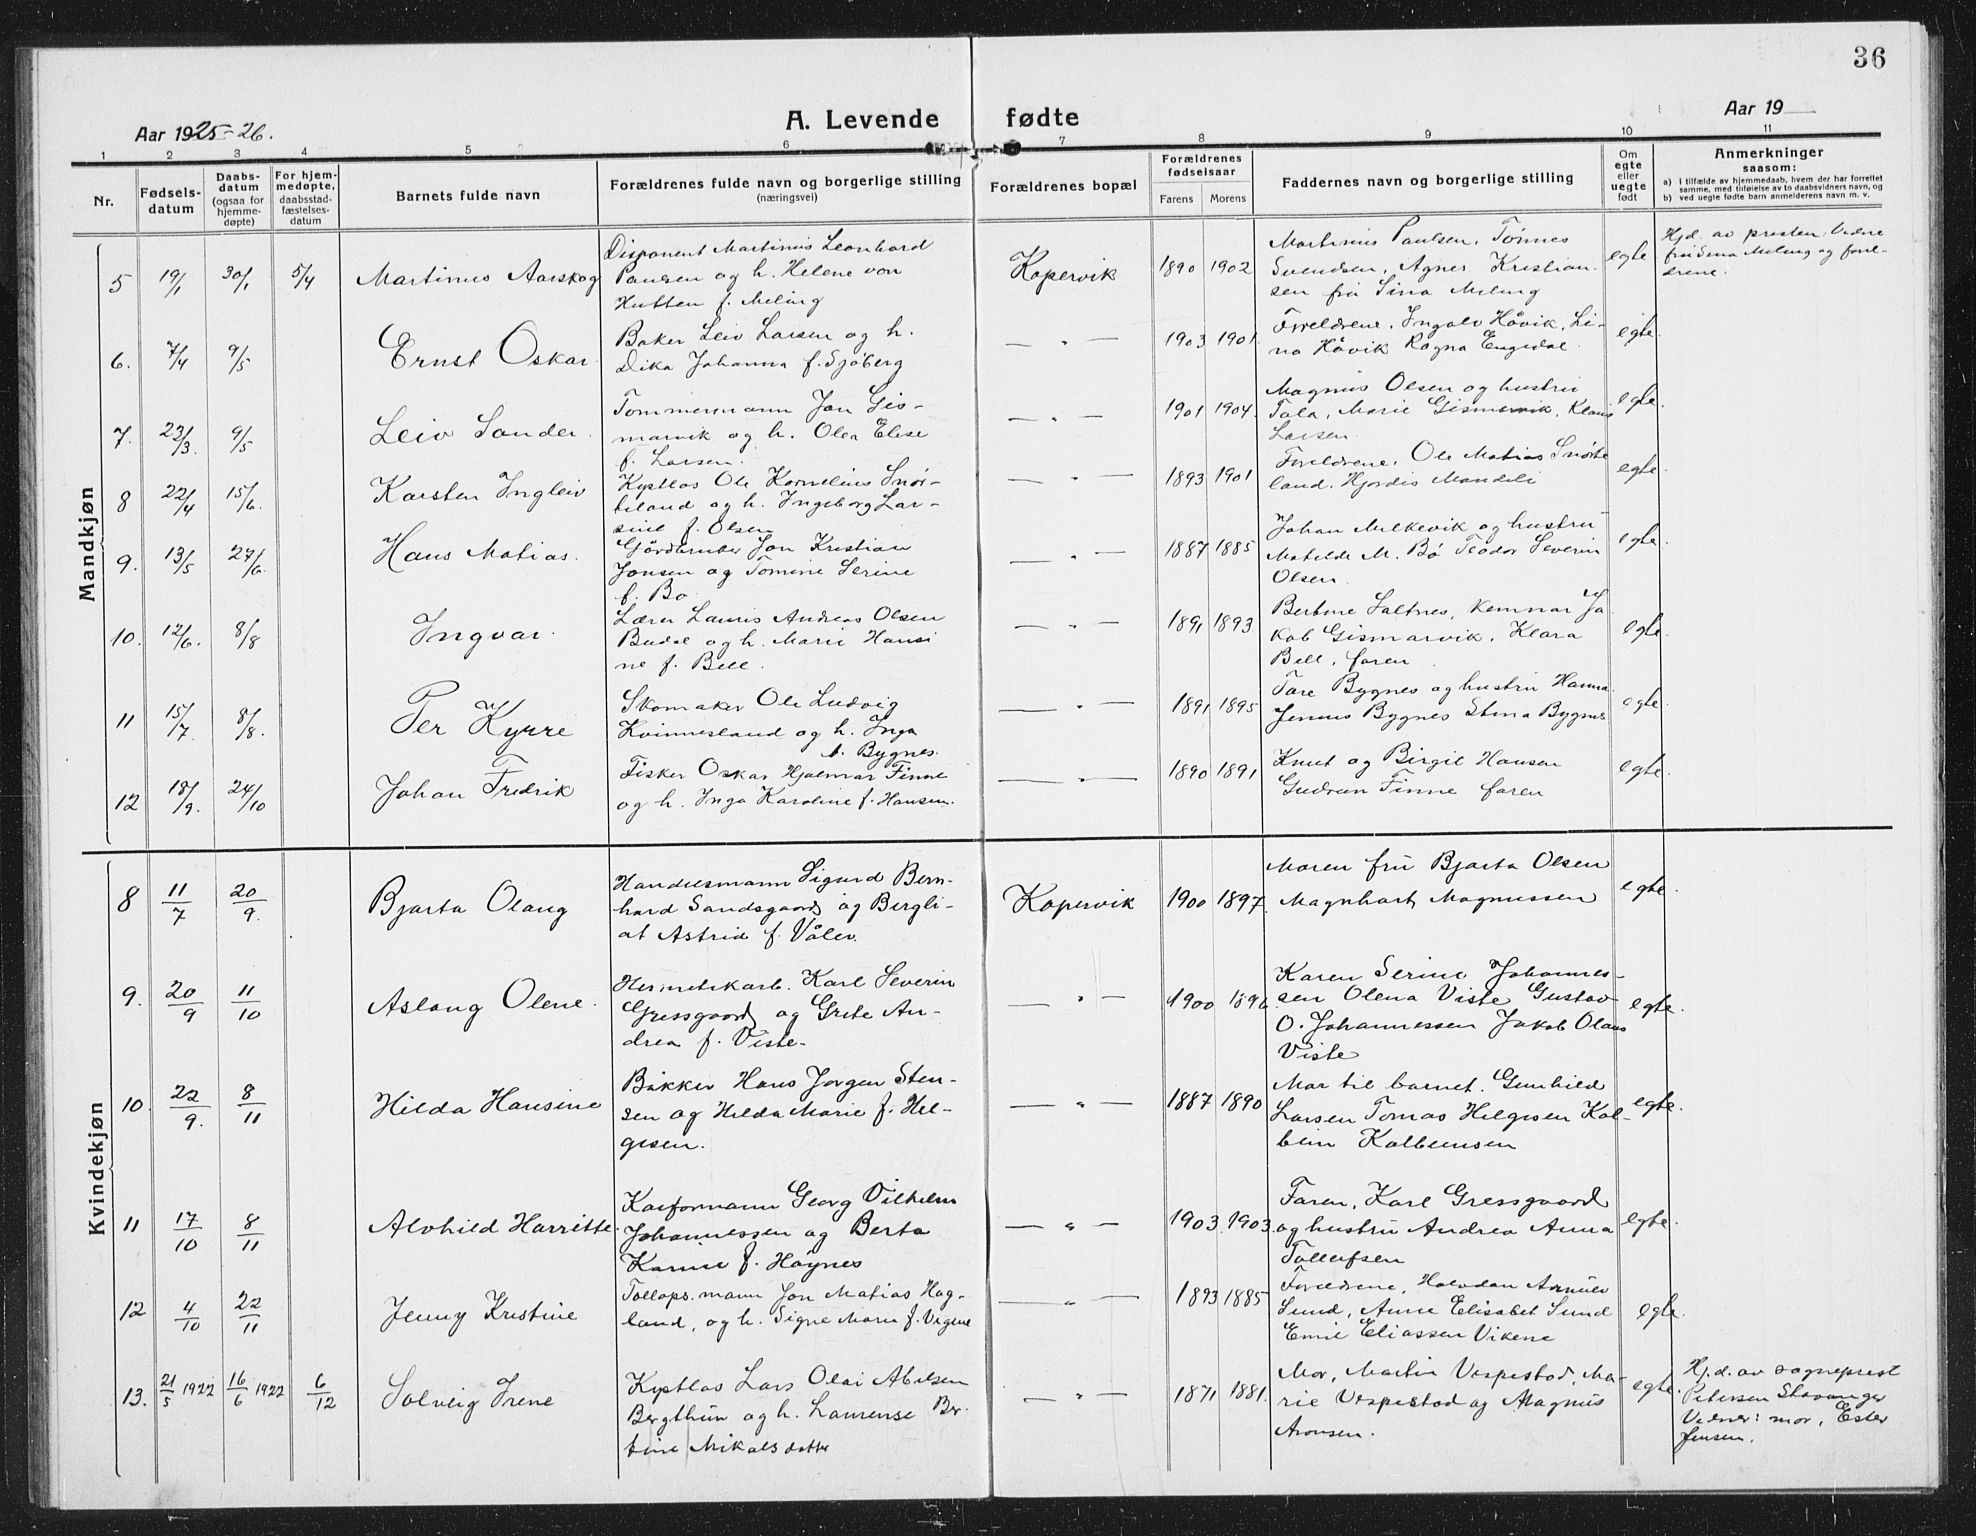 36
Aar 1925-26.
A. Levende fødte
Aar 19
1 2 3 4 5 6 7 8 9 10 11
Nr.
Fødsels-
datum
Daabs-
datum
(ogsaa for
hjemme-
døpte)
For hjem-
medøpte,
daabsstad-
fæstelses-
datum
Barnets fulde navn
Forældrenes fulde navn og borgerlige stilling
(næringsvei)
Forældrenes bopæl
Forældrenes
fødselsaar
Farens Morens
Faddernes navn og borgerlige stilling
Om
egte
eller
uegte
født
Anmerkninger
saasom:
a) I tilfælde av hjemmedaab, hvem der har forrettet
samme, med tilføielse av to daabsvidners navn, og
b) ved uegte fødte barn anmelderens navn m. v.
Mandkjøn
5 19/1 30/1 5/4 Martinus Aarskog
Disponent Martinus Leonhard
Paulsen og h. Helene von
Hutten f. Meling
Kopervik 1890 1902
Martinus Paulsen, Tønnes
Svendsen, Agnes Kristian-
sen fru Sina Meling
egte
Hjd. av presten. Vidne
fru Sina Meling og forel-
drene.
6. 7/4 9/5 Ernst Oskar
Baker Leiv Larsen og h.
Dika Johanna f. Sjøberg
— " — 1903 1901
Foreldrene, Ingolv Håvik, Li-
na Håvik Ragna Engedal
egte.
7. 23/3. 9/5 Leiv Sander.
Tømmermann Jon Gis-
marvik og h. Olea Elise
f. Larsen.
— " — 1901 1904.
Magnus Olsen og hustru
Tala, Marie Gismarvik, Klaus
Larsen
egte.
8 22/4 15/6. Karsten Ingleiv
Kystlos Ole Kornelius Snør-
teland og h. Ingeborg Lar-
sine f. Olsen
— " — 1893 1901
Foreldrene, Ole Matias Snørte
land, Hjørdis Mandeli
egte
9. 13/5 27/6 Hans Matias.
Gårdbruker Jon Kristian
Jonsen og Tomine Serine
f. Bø
— " — 1887 1885
Johan Milkevik og hustru
Matilde M. Bø Teodor Severin
Olsen
egte.
10. 12/6. 8/8 Ingvar.
Lærer Lauris Andreas Olsen
Budal og h. Marie Hansi
ne f. Bell.
— " — 1891 1893
Bertine Saltnes, Kemnar Ja
kob Gismarvik, Klara
Bell, faren
egte.
11 15/7 8/8. Per Kyrre
Skomaker Ole Ludvig
Kvinnesland og h. Inga
f. Bygnes.
— " — 1891 1895
Tore Bygnes og hustru Hanna
Jenius Bygnes Stina Bygnes
egte.
12 18/9. 24/10 Johan Fredrik
Fisker Oskar Hjalmar Finne
og h. Inga Karoline f. Hansen.
— " — 1890 1891
Knut og Birgit Hansen
Gudrun Finne faren
egte.
Kvindekjøn
8 11/7 20/9. Bjarta Olaug
Handelsmann Sigurd Bern-
hard Sandsgaard og Bergli-
at Astrid f. Våler.
Kopervik 1900 1897.
Moren fru Bjarta Olsen
Magnhart Magnussen
egte.
9. 20/9 11/10 Aslaug Olene.
Hermetikarb. Karl Severin
Gressgaard og Grete An-
drea f. Viste-
— " — 1900 1896
Karen Serine Johannes-
sen Olena Viste Gustav
O. Johannessen Jakob Olaus
Viste
egte.
10. 22/9. 8/11 Hilda Hansine
Bøkker Hans Jørgen Sten-
sen og Hilda Marie f. Hel-
gesen.
— " — 1887 1890
Mor til barnet. Gunhild
Larsen Tomas Helgesen Kol-
bein Kolbeinsen
egte.
11 17/10 8/11 Alvhild Harritte.
Kaiformann Georg Vilhelm
Johannessen og Berta
Karine f. Høynes
— " — 1903. 1903.
Faren, Karl Gressgaard
og hustru Andrea Anna
Tollefsen
egte.
12 4/10 22/11 Jenny Kristine
Tollops.mann Jon Matias Hag-
land, og h. Signe Marie f. Vigene
— " — 1893 1885
Foreldrene, Halvdan
Sund, Anne Elisabet Sund
Emil Eliassen Vikene
egte.
13. 21/5 1922 16/6 1922 6/12 Solveig Irene
Kystlos Lars Olai Abelsen
Bergthun og h. Laurense Ber-
tine Mikalsdatter
— " — 1871 1881.
Mor, Martin Vespestad, Ma-
rie Vespestad og Magnus
Aronsen.
egte.
Hj.d. av sogneprest
Petersen Stavanger
Vidner: mor, Ester
Jensen.